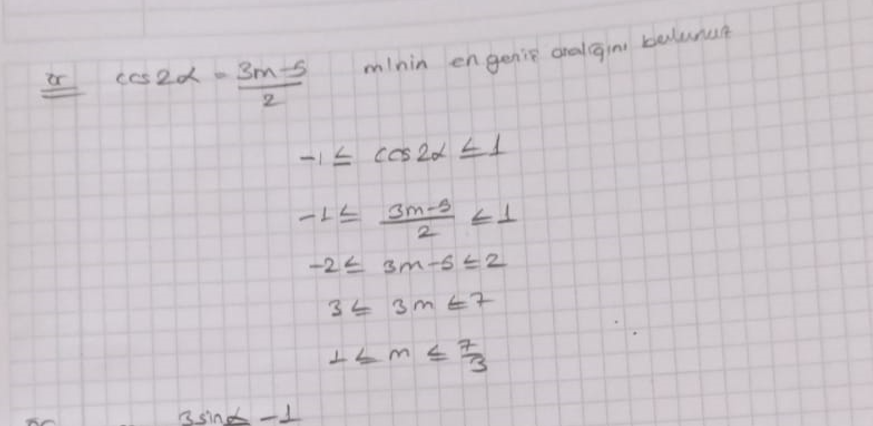 ör cos2α = 3m-5/2 m'nin en geniş aralığını bulunuz
-1 ≤ cos2α ≤ 1
-1 ≤ 3m-5/2 ≤ 1
-2 ≤ 3m-5 ≤ 2
3 ≤ 3m ≤ 7
1 ≤ m ≤ 7/3
3sinα -1